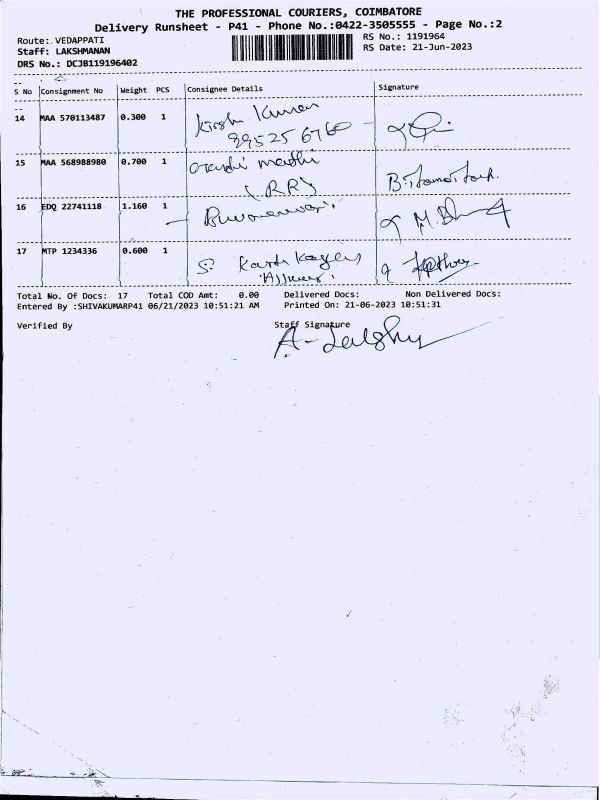 THE PROFESSIONAL COURIERS, COIMBATORE
Delivery Runsheet - P41 - Phone No.:0422-3505555 - Page No.:2
Route: VEDAPPATI RS No.: 1191964
Staff: LAKSHMANAN RS Date: 21-Jun-2023
DRS No.: DCJB119196402
S No Consignment No Weight PCS Consignee Details Signature
14 MAA 570113487 0.300 1 Kumar
15 MAA 568988980 0.700 1
(RR)
16 EDQ 22741118 1.160 1
17 MTP 1234336 0.600 1 S.
Total No. Of Docs: 17 Total COD Amt: 0.00 Delivered Docs: Non Delivered Docs:
Entered By :SHIVAKUMARP41 06/21/2023 10:51:21 AM Printed On: 21-06-2023 10:51:31
Verified By Staff Signature